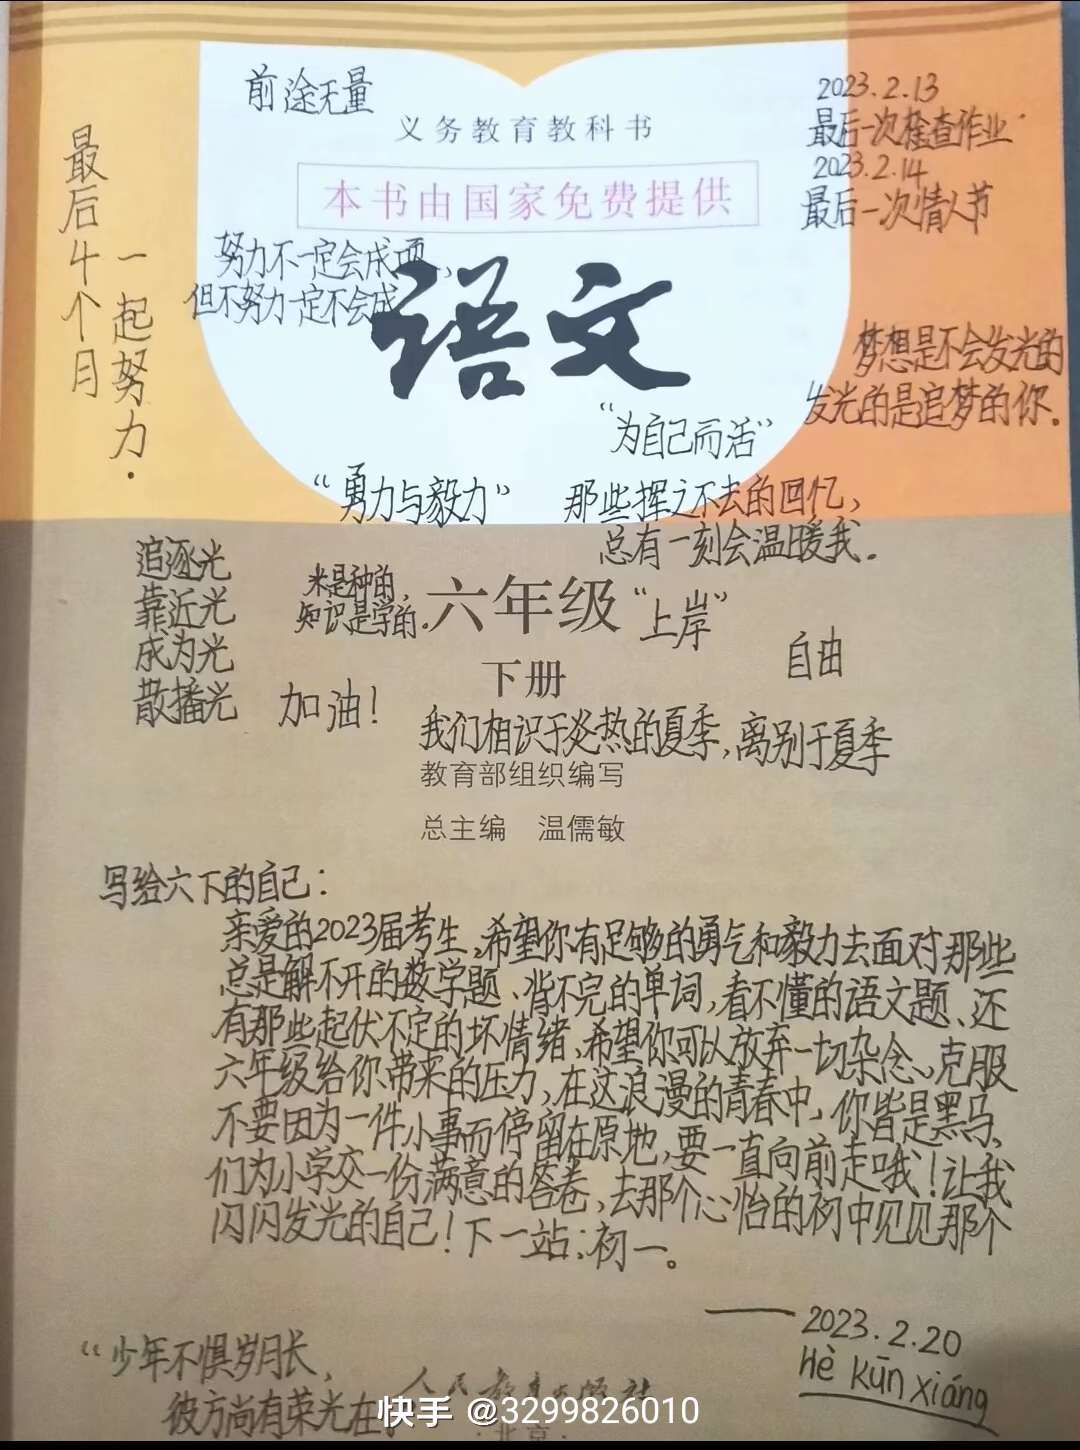 前途无量
义务教育教科书
本书由国家免费提供
2023.2.13
最后一次检查作业
2023.2.14
最后一次情人节
最后4个月
一起努力.
努力不一定会成
但不努力一定不会成
语文
梦想是不会发光的
发光的是追梦的你.
“为自己而活”
“勇力与毅力”
那些挥之不去的回忆,
总有一刻会温暖我.
追逐光
靠近光
成为光
散播光
米是种的,
知识是学的.
六年级
“上岸”
下册
自由
加油!
我们相识于炎热的夏季,离别于夏季
教育部组织编写
总主编 温儒敏
写给六下的自己:
亲爱的2023届考生,希望你有足够的勇气和毅力去面对那些
总是解不开的数学题、背不完的单词,看不懂的语文题、还
有那些起伏不定的坏情绪,希望你可以放弃一切杂念、克服
六年级给你带来的压力,在这浪漫的青春中,你皆是黑马,
不要因为一件小事而停留在原地,要一直向前走哦!让我
们为小学交一份满意的答卷,去那个心怡的初中见见那个
闪闪发光的自己!下一站:初一。
——2023.2.20
Hè Kūn xiáng
“少年不惧岁月长,
彼方尚有荣光在.
人民教育出版社
·北京·
快手 @3299826010